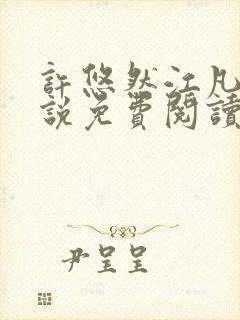 許悠然江凡
說免費閱讀
尹呈呈